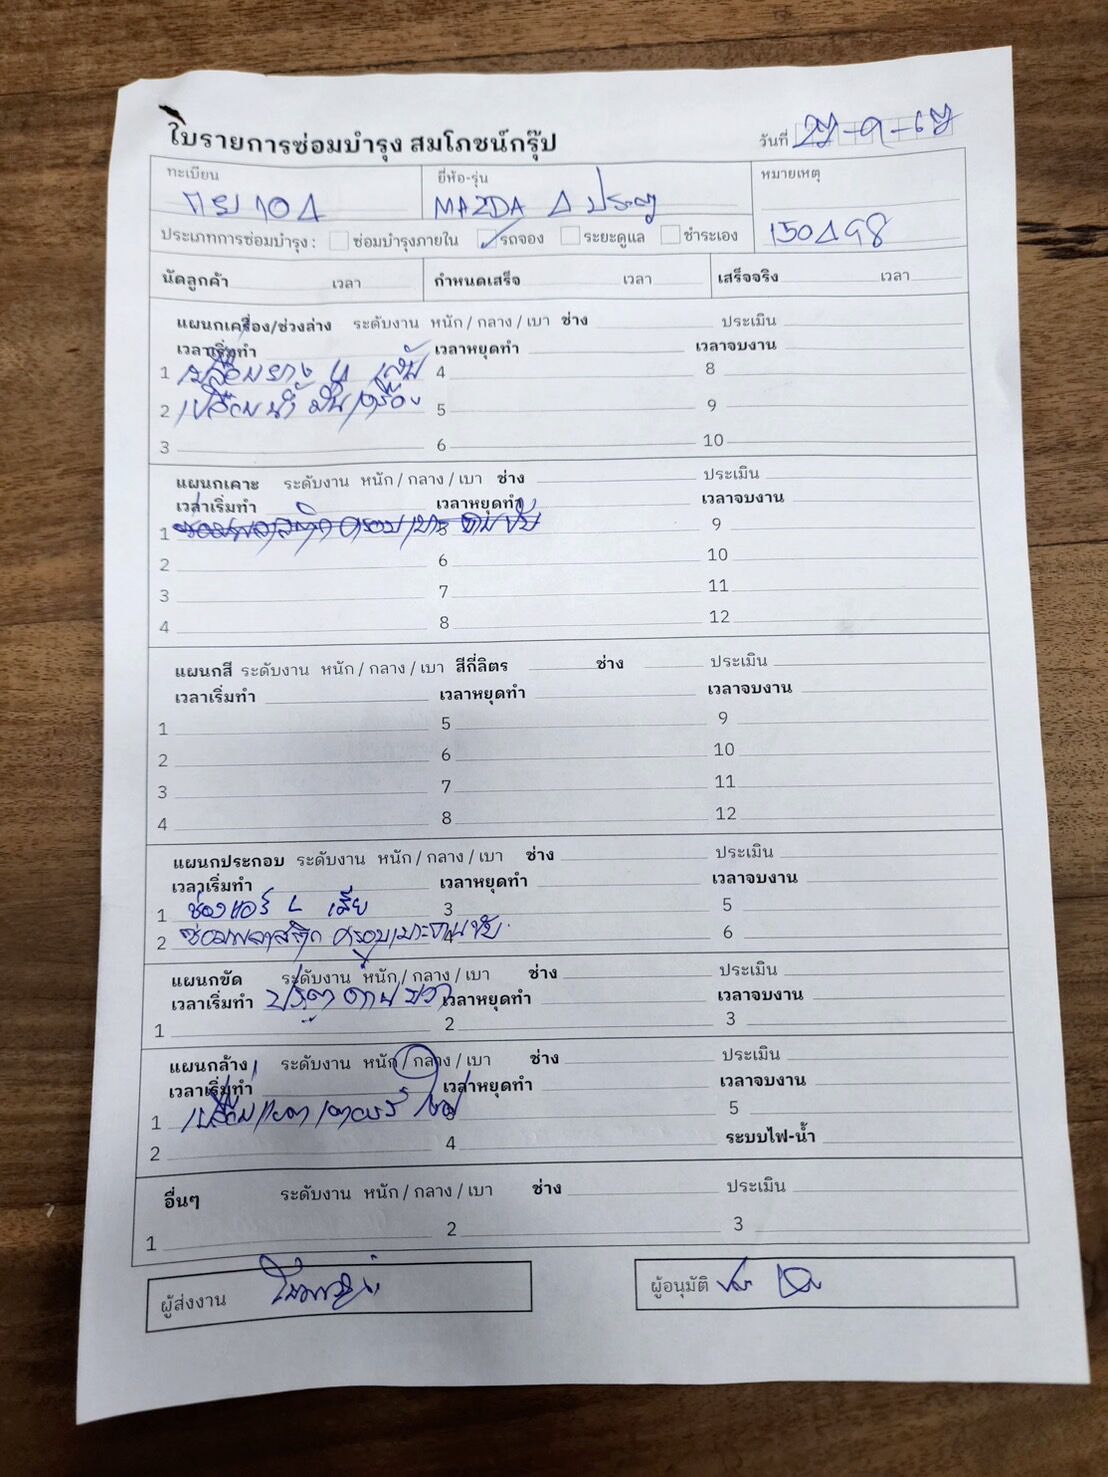 ใบรายการซ่อมบำรุง สมโภชน์กรุ๊ป
วันที่
ทะเบียน ยี่ห้อ-รุ่น หมายเหตุ
MAZDA ประตู
ประเภทการซ่อมบำรุง : ซ่อมบำรุงภายใน รถจอง ระยะดูแล ชำระเอง
นัดลูกค้า เวลา กำหนดเสร็จ เวลา เสร็จจริง เวลา
แผนกเครื่อง/ช่วงล่าง ระดับงาน หนัก / กลาง / เบา ช่าง ประเมิน
เวลาเริ่มทำ เวลาหยุดทำ เวลาจบงาน
1 เปลี่ยนยาง 4 เส้น 4 8
2 เปลี่ยนน้ำมันเครื่อง 5 9
3 6 10
แผนกเคาะ ระดับงาน หนัก / กลาง / เบา ช่าง ประเมิน
เวลาเริ่มทำ เวลาหยุดทำ เวลาจบงาน
1 ซ่อมพลาสติกครอบเบาะคนขับ 5 9
2 6 10
3 7 11
4 8 12
แผนกสี ระดับงาน หนัก / กลาง / เบา สีกี่ลิตร ช่าง ประเมิน
เวลาเริ่มทำ เวลาหยุดทำ เวลาจบงาน
1 5 9
2 6 10
3 7 11
4 8 12
แผนกประกอบ ระดับงาน หนัก / กลาง / เบา ช่าง ประเมิน
เวลาเริ่มทำ เวลาหยุดทำ เวลาจบงาน
1 ช่องแอร์ L เสีย 3 5
2 ซ่อมพลาสติก ครอบเบาะคนขับ 4 6
แผนกขัด ระดับงาน หนัก / กลาง / เบา ช่าง ประเมิน
เวลาเริ่มทำ เวลาหยุดทำ เวลาจบงาน
1 2 3
แผนกล้าง ระดับงาน หนัก / กลาง / เบา ช่าง ประเมิน
เวลาเริ่มทำ เวลาหยุดทำ เวลาจบงาน
1 เปลี่ยน 5
2 4 ระบบไฟ-น้ำ
อื่นๆ ระดับงาน หนัก / กลาง / เบา ช่าง ประเมิน
1 2 3
ผู้ส่งงาน ผู้อนุมัติ